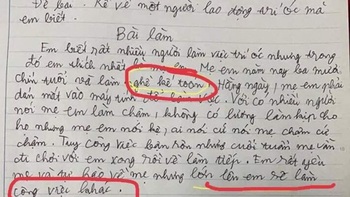 Đề bài: Kể về một người lao động trí óc mà
em biết.
Bài làm
Em biết rất nhiều người làm việc trí óc nhưng trong
đó em thích nhất là mẹ em. Mẹ em năm nay ba mươi
chín tuổi và làm nghề kế toán. Hằng ngày, mẹ em phải
dán mắt vào máy tính để làm việc. Với có nhiều người
nói mẹ em làm chậm, không có lương làm kịp cho
họ nhưng mẹ em nói kệ, ai nói cứ nói mẹ chậm cứ
chậm. Tuy công việc bận rộn nhưng cuối tuần mẹ vẫn
đi chơi với em xong rồi về làm tiếp. Em rất yêu
mẹ và tự hào về mẹ nhưng lớn lên em sẽ làm
công việc khác.